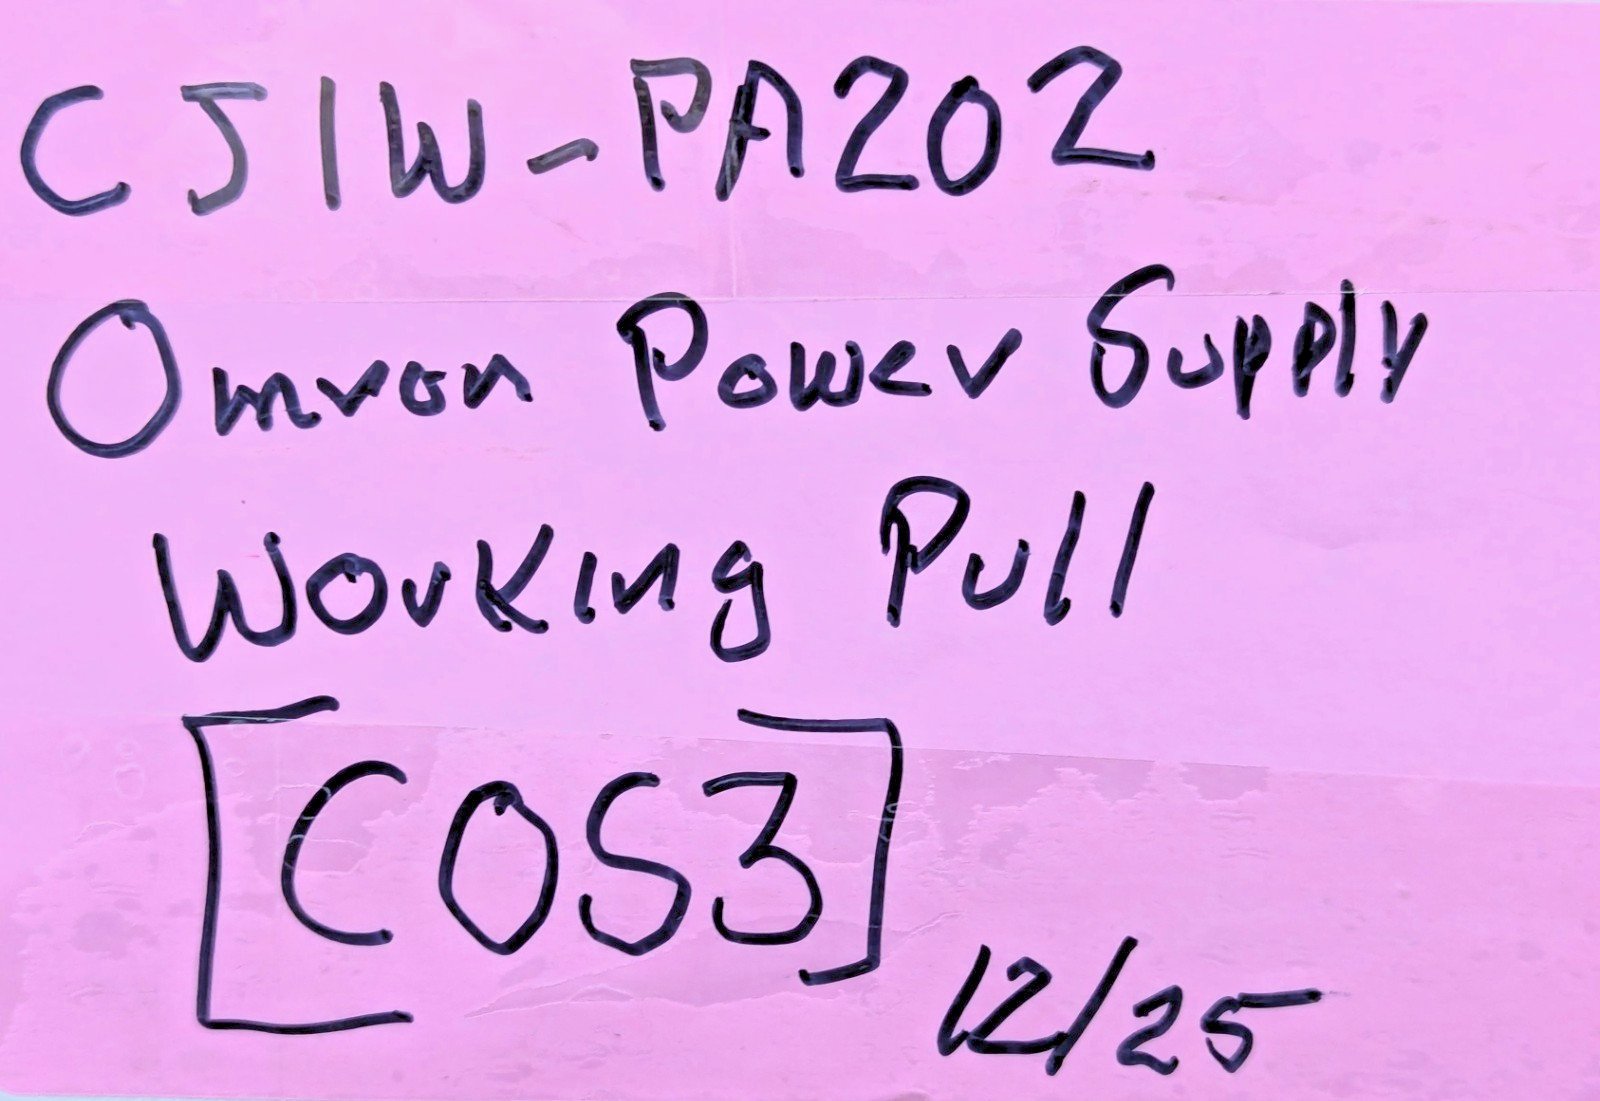 CJ1W-PA202
Omron Power Supply
Working Pull
[COS3]
12/25